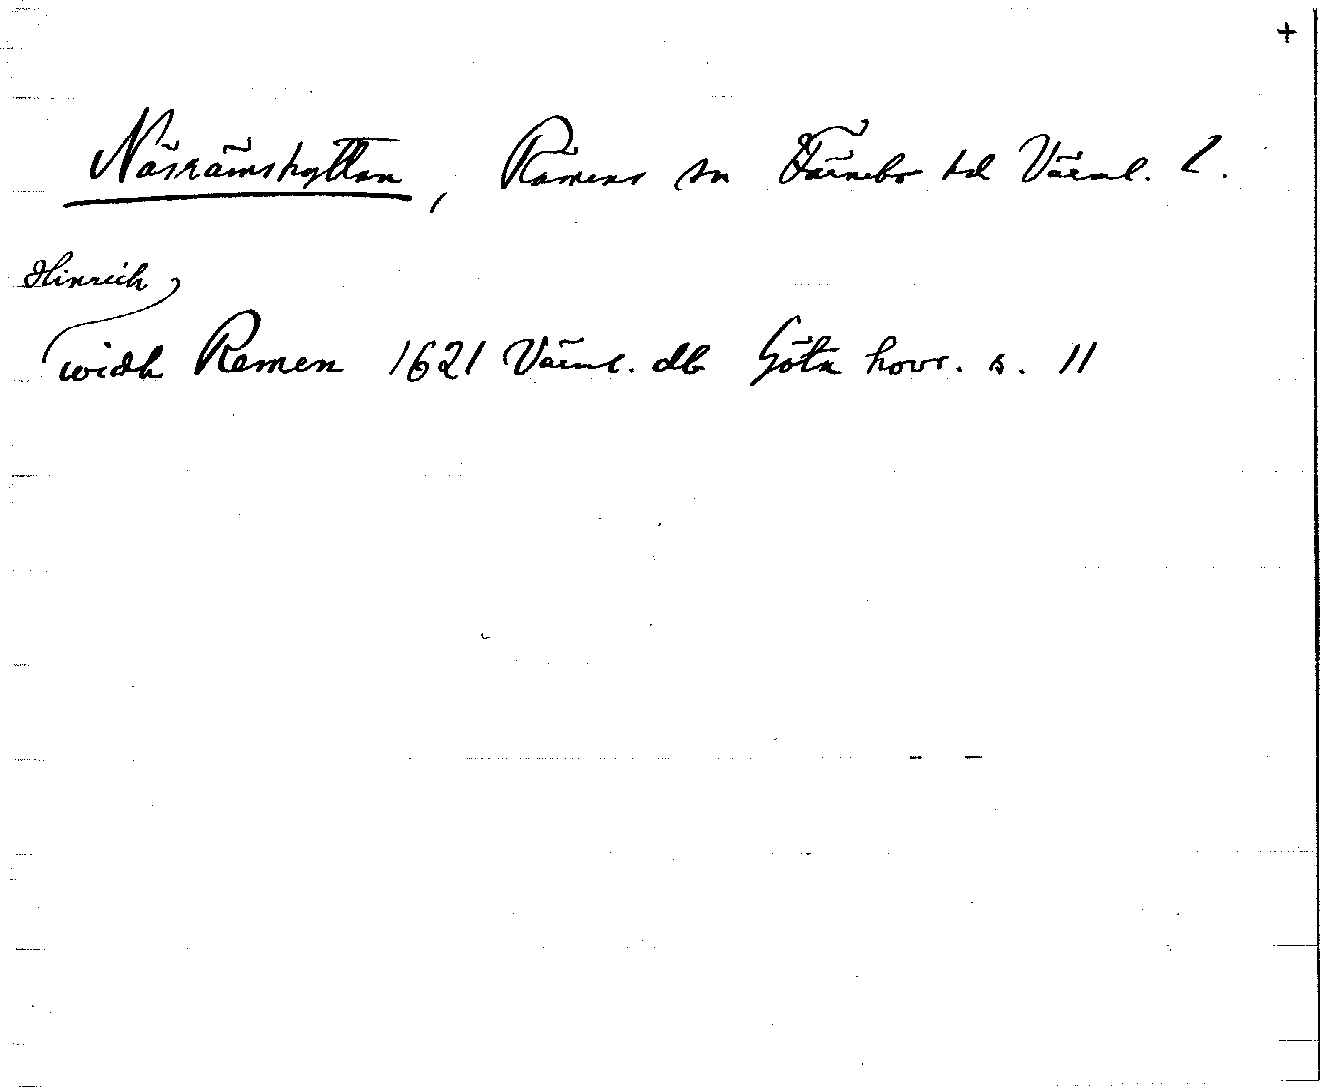 +
Näsrämshyttan, Rämens sn Färnebo hd Värml. l.
Hinrich
widh Remen 1621 Värml. db Göta hovr. s. 11